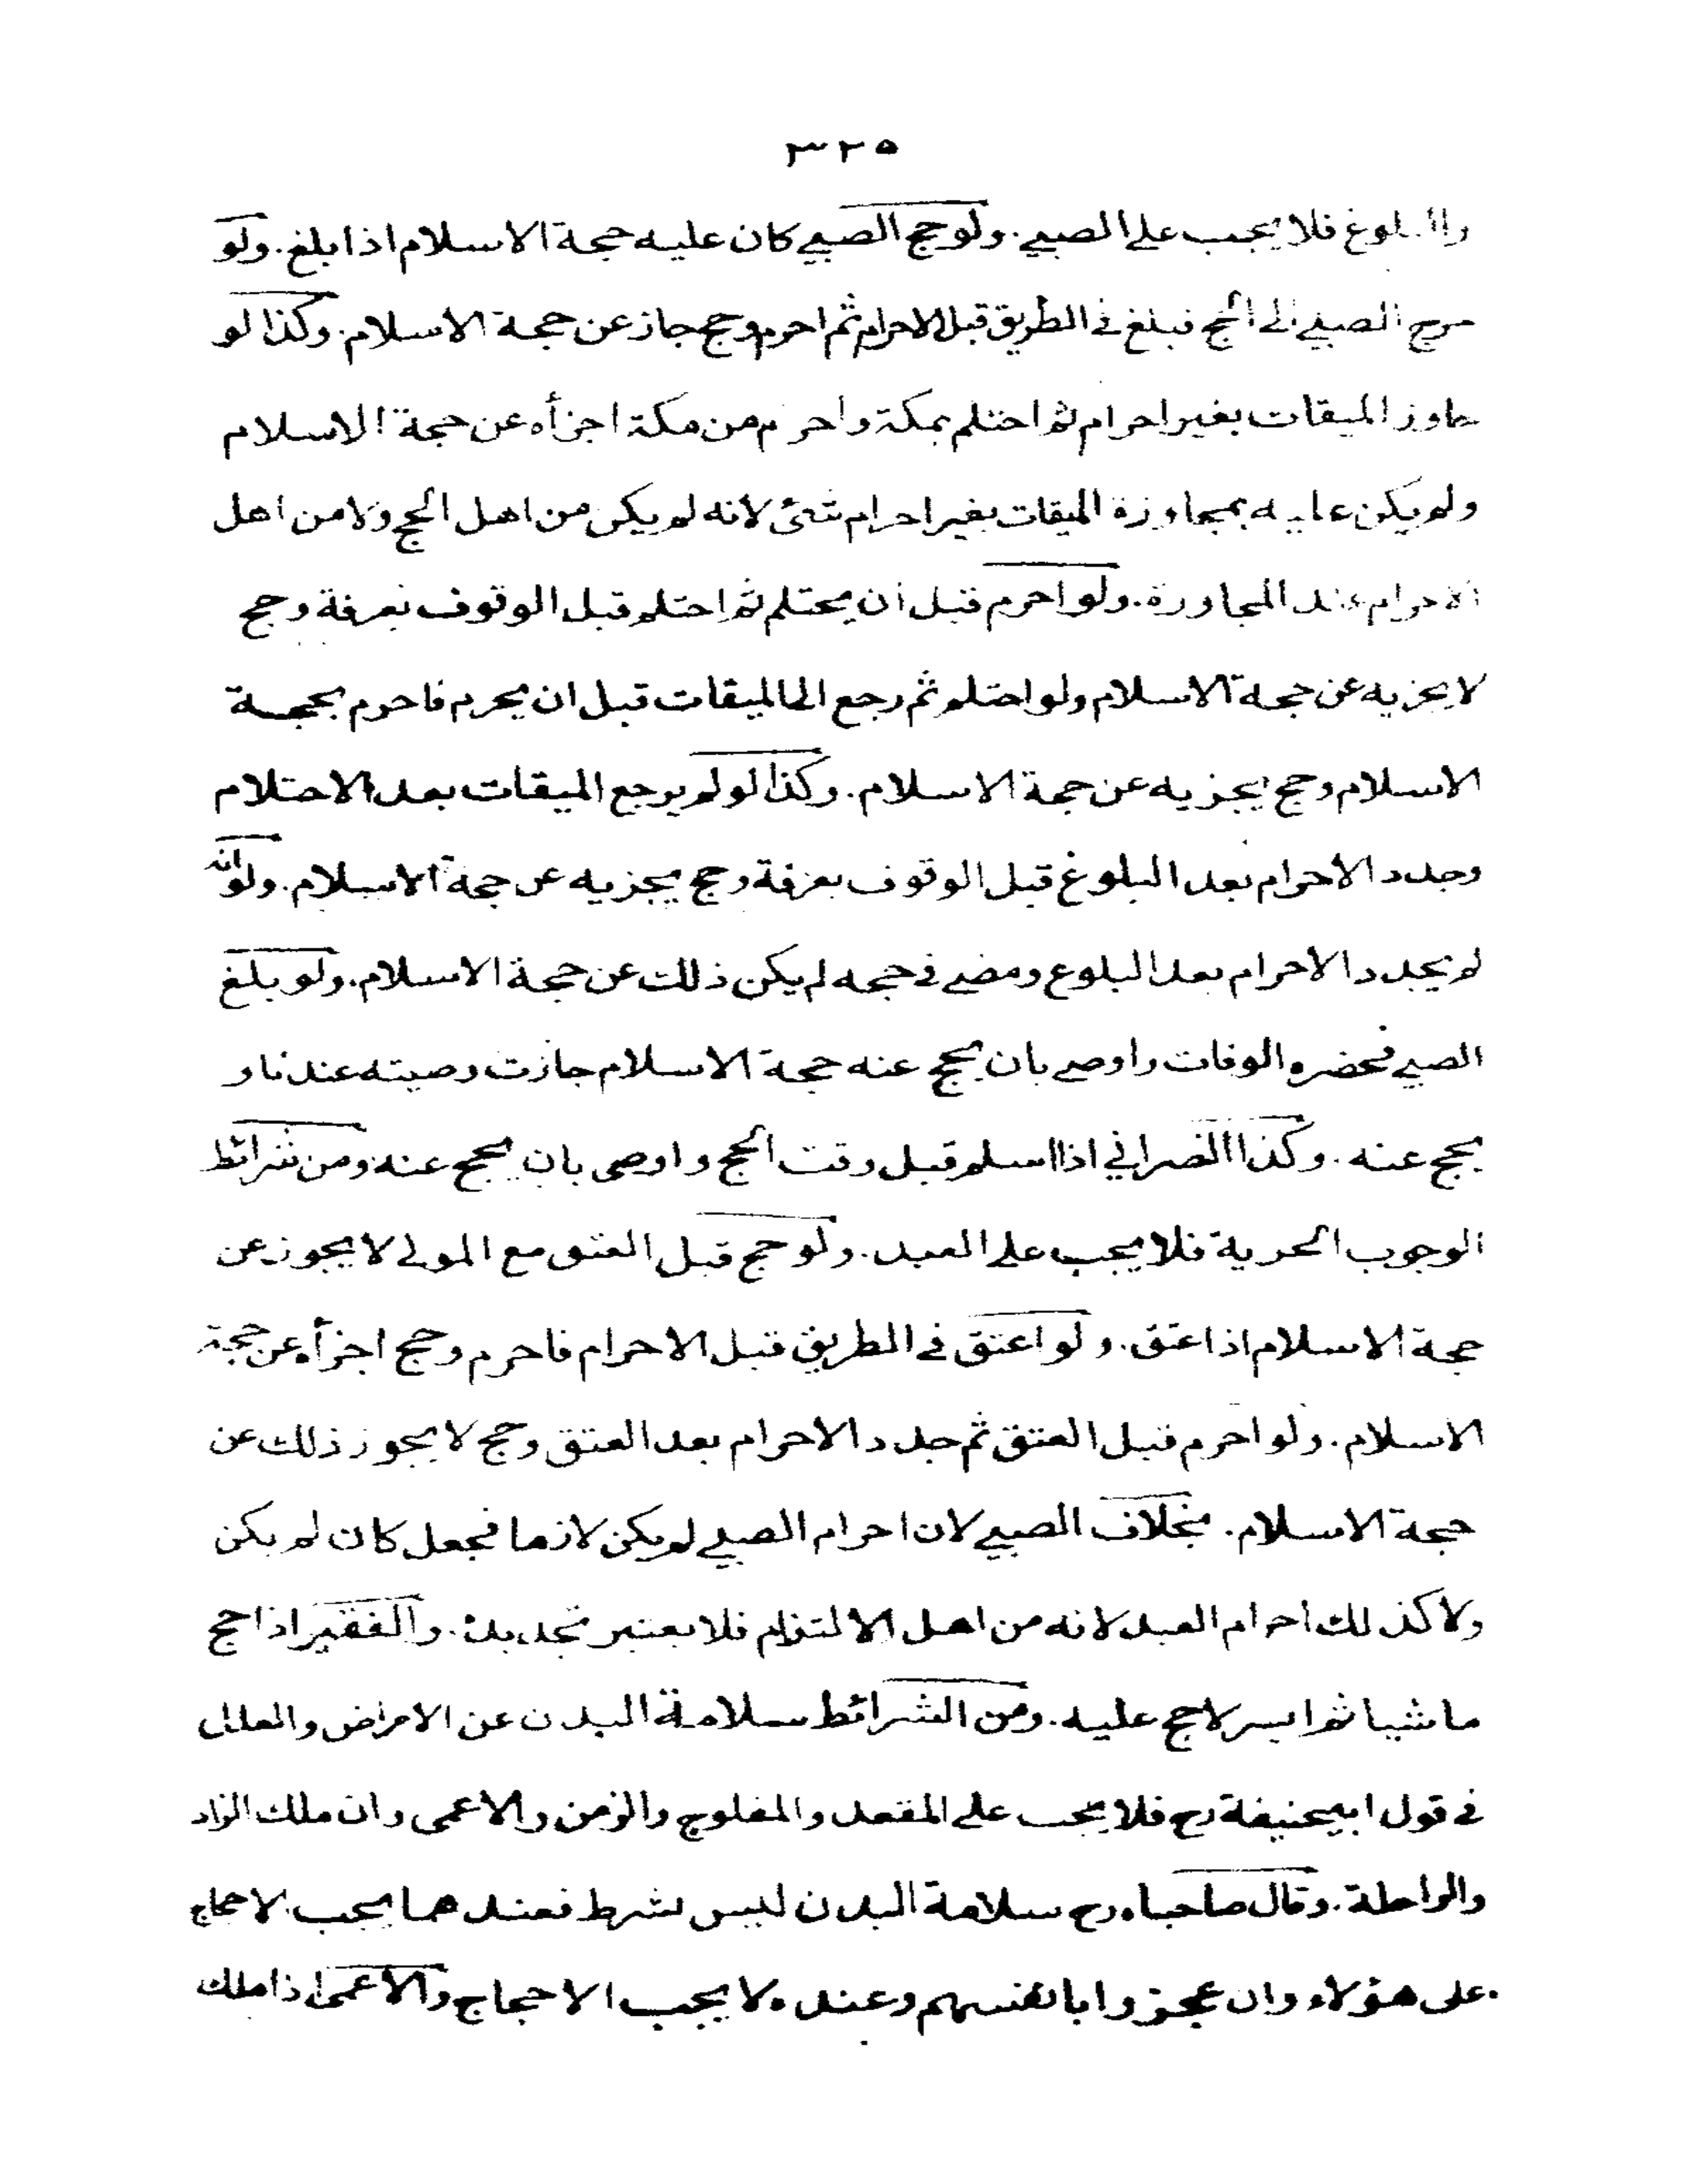 ٣٢٥
والبلوغ فلا يجب على الصبي. ولو حج الصبي كان عليه حجة الاسلام اذا بلغ. ولو
خرج الصبي الى الحج فبلغ في الطريق قبل الاحرام ثم احرم وحج جاز عن حجة الاسلام. وكذا لو
جاوز الميقات بغير احرام ثم احتلم بمكة واحرم من مكة اجزأه عن حجة الاسلام
ولم يكن عليه بمجاوزة الميقات بغير احرام شئ لانه لم يكن من اهل الحج ولا من اهل
الاحرام عند المجاورة. ولو احرم قبل ان يحتلم ثم احتلم قبل الوقوف بعرفة وحج
لا يجزيه عن حجة الاسلام ولو احتلم ثم رجع الى الميقات قبل ان يحرم فاحرم بحجة
الاسلام وحج يجزيه عن حجة الاسلام. وكذا لو لم يرجع الميقات بعد الاحتلام
وجدد الاحرام بعد البلوغ قبل الوقوف بعرفة وحج يجزيه عن حجة الاسلام. ولو انه
لم يجدد الاحرام بعد البلوغ ومضى في حجه لم يكن ذلك عن حجة الاسلام. ولو بلغ
الصبي فحضره الوفات واوصى بان يحج عنه حجة الاسلام جازت وصيته عندنا و
يحج عنه. وكذا النصراني اذا اسلم قبل وقت الحج واوصى بان يحج عنه ومن شرائط
الوجوب الحرية فلا يجب على العبد. ولو حج قبل العتق مع المولى لا يجوز عن
حجة الاسلام اذا عتق. ولو اعتق في الطريق قبل الاحرام فاحرم وحج اجزأه عن حجة
الاسلام. ولو احرم قبل العتق ثم جدد الاحرام بعد العتق وحج لا يجوز ذلك عن
حجة الاسلام. بخلاف الصبي لان احرام الصبي لم يكن لازما فجعل كان لم يكن
ولا كذلك احرام العبد لانه من اهل الالتزام فلا يعتبر تجديده. والفقير اذا حج
ماشيا ثم ايسر لا حج عليه. ومن الشرائط سلامة البدن عن الامراض والعلل
في قول ابيحنيفة رح فلا يجب على المقعد والمفلوج والزمن والاعمى وان ملك الزاد
والراحلة. وقال صاحباه رح سلامة البدن ليس بشرط فعندهما يجب الاحجاج
على هؤلاء وان عجزوا بانفسهم وعنده لا يجب الاحجاج والاعمى اذا ملك